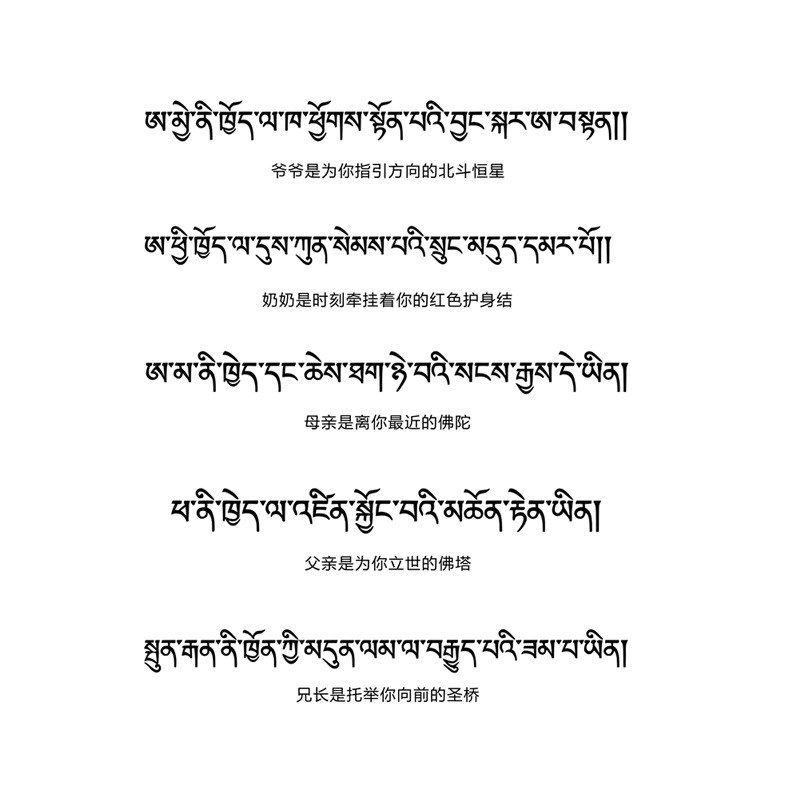 ཨ་མྱེ་ནི་ཁྱོད་ལ་ཁ་ཕྱོགས་སྟོན་པའི་བྱང་སྐར་ཨ་བསྟན།།
爷爷是为你指引方向的北斗恒星
ཨ་ཕྱི་ཁྱོད་ལ་དུས་ཀུན་སེམས་པའི་སྲུང་མདུད་དམར་པོ།།
奶奶是时刻牵挂着你的红色护身结
ཨ་མ་ནི་ཁྱེད་དང་ཆེས་ཐག་ཉེ་བའི་སངས་རྒྱས་དེ་ཡིན།
母亲是离你最近的佛陀
ཕ་ནི་ཁྱེད་ལ་འཛིན་སྐྱོང་བའི་མཆོན་རྟེན་ཡིན།
父亲是为你立世的佛塔
སྤུན་རྒན་ནི་ཁྱོན་ཀྱི་མདུན་ལམ་ལ་བརྒྱུད་པའི་ཟམ་པ་ཡིན།
兄长是托举你向前的圣桥